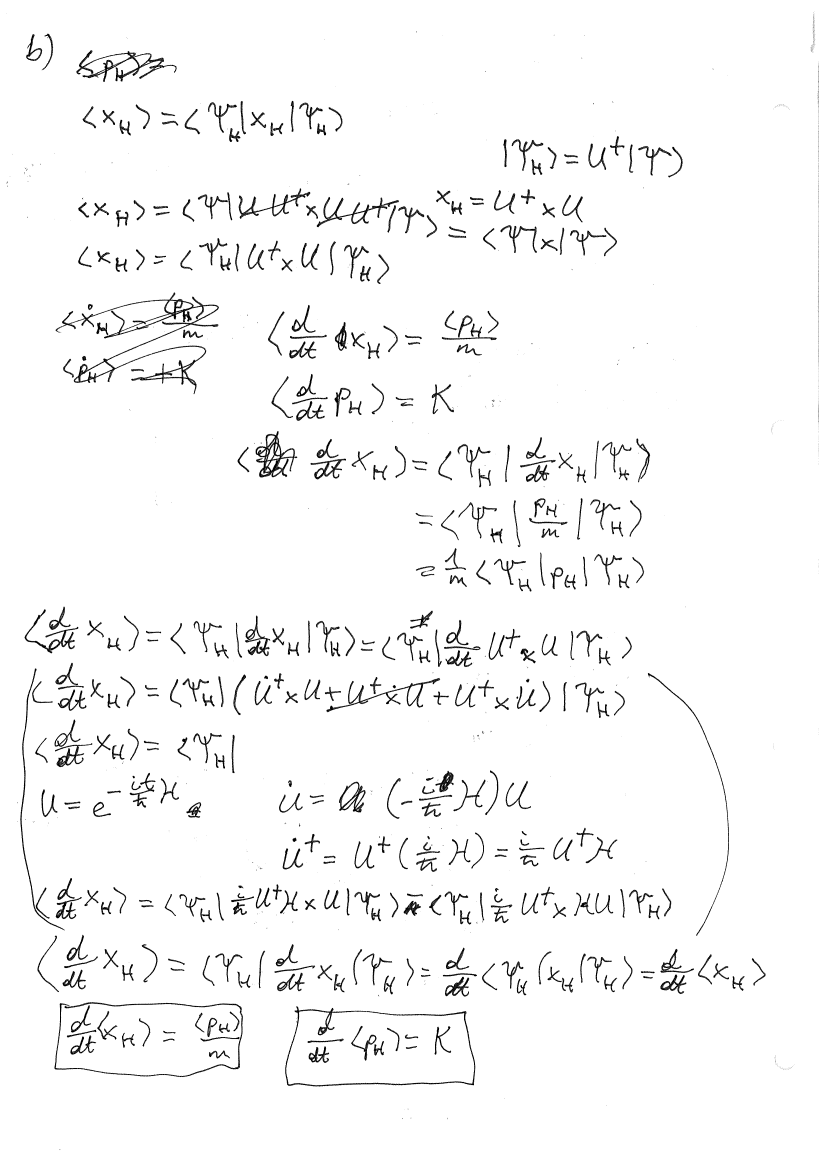 b)
⟨p_H⟩ =
⟨x_H⟩ = ⟨Ψ_H|x_H|Ψ_H⟩
|Ψ_H⟩ = U†|Ψ⟩
x_H = U† x U
⟨x_H⟩ = ⟨Ψ|U U† x U U†|Ψ⟩ = ⟨Ψ|x|Ψ⟩
⟨x_H⟩ = ⟨Ψ_H|U† x U|Ψ_H⟩
⟨ẋ_H⟩ = ⟨p_H⟩/m
⟨d/dt x_H⟩ = ⟨p_H⟩/m
⟨ṗ_H⟩ = +K
⟨d/dt p_H⟩ = K
⟨d/dt x_H⟩ = ⟨Ψ_H|d/dt x_H|Ψ_H⟩
= ⟨Ψ_H|p_H/m|Ψ_H⟩
= 1/m ⟨Ψ_H|p_H|Ψ_H⟩
⟨d/dt x_H⟩ = ⟨Ψ_H|d/dt x_H|Ψ_H⟩ = ⟨Ψ_H|d/dt U† x U|Ψ_H⟩
⟨d/dt x_H⟩ = ⟨Ψ_H|(U̇† x U + U† ẋ U + U† x U̇)|Ψ_H⟩
⟨d/dt x_H⟩ = ⟨Ψ_H|
U = e^{-it/ħ H}
U̇ = (-i/ħ H) U
U̇† = U† (i/ħ H) = i/ħ U† H
⟨d/dt x_H⟩ = ⟨Ψ_H|i/ħ U† H x U|Ψ_H⟩ - ⟨Ψ_H|i/ħ U† x H U|Ψ_H⟩
⟨d/dt x_H⟩ = ⟨Ψ_H|d/dt x_H|Ψ_H⟩ = d/dt ⟨Ψ_H|x_H|Ψ_H⟩ = d/dt ⟨x_H⟩
d/dt ⟨x_H⟩ = ⟨p_H⟩/m
d/dt ⟨p_H⟩ = K